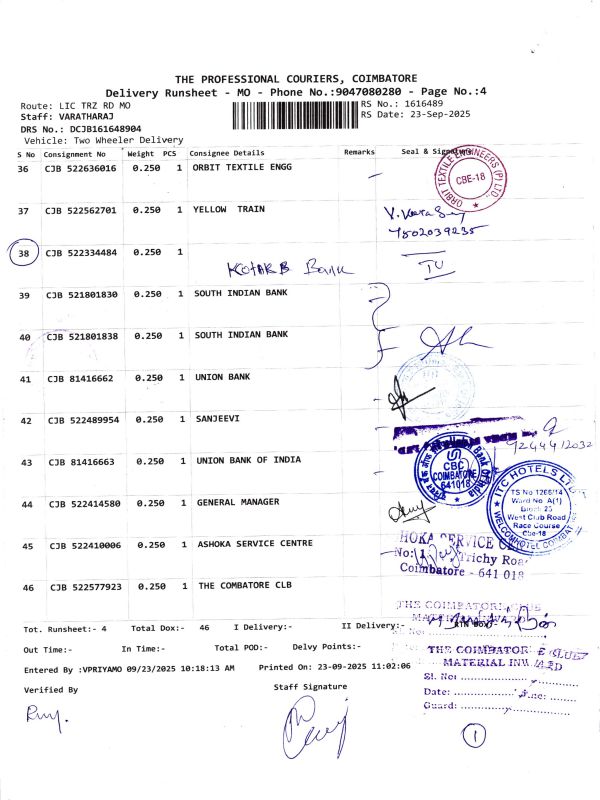 THE PROFESSIONAL COURIERS, COIMBATORE
Delivery Runsheet - MO - Phone No.:9047080280 - Page No.:4
Route: LIC TRZ RD MO
RS No.: 1616489
Staff: VARATHARAJ
RS Date: 23-Sep-2025
DRS No.: DCJB161648904
Vehicle: Two Wheeler Delivery
S No Consignment No Weight PCS Consignee Details Remarks Seal & Signature
36 CJB 522636016 0.250 1 ORBIT TEXTILE ENGG
ORBIT TEXTILE ENGINEERS (P) LTD. CBE-18
37 CJB 522562701 0.250 1 YELLOW TRAIN
7502039235
38 CJB 522334484 0.250 1
KOTAK B Bank
39 CJB 521801830 0.250 1 SOUTH INDIAN BANK
40 CJB 521801838 0.250 1 SOUTH INDIAN BANK
41 CJB 81416662 0.250 1 UNION BANK
42 CJB 522489954 0.250 1 SANJEEVI
43 CJB 81416663 0.250 1 UNION BANK OF INDIA
CBC
COIMBATORE
641018
44 CJB 522414580 0.250 1 GENERAL MANAGER
ITC HOTELS LTD
TS No 1266/14
Ward No A(1)
Block 25
West Club Road
Race Course
Cbe-18
WELCOMHOTEL COIMBATORE
45 CJB 522410006 0.250 1 ASHOKA SERVICE CENTRE
HOKA SERVICE
No: 1 Trichy Road
Coimbatore - 641 018
46 CJB 522577923 0.250 1 THE COMBATORE CLB
THE COIMBATORE CLUB
Tot. Runsheet:- 4 Total Dox:- 46 I Delivery:- II Delivery:-
Out Time:- In Time:- Total POD:- Delvy Points:-
THE COIMBATORE CLUB
MATERIAL INWARD
Sl. No:
Date:
Guard:
Entered By :VPRIYAMO 09/23/2025 10:18:13 AM Printed On: 23-09-2025 11:02:06
Verified By
Staff Signature
1